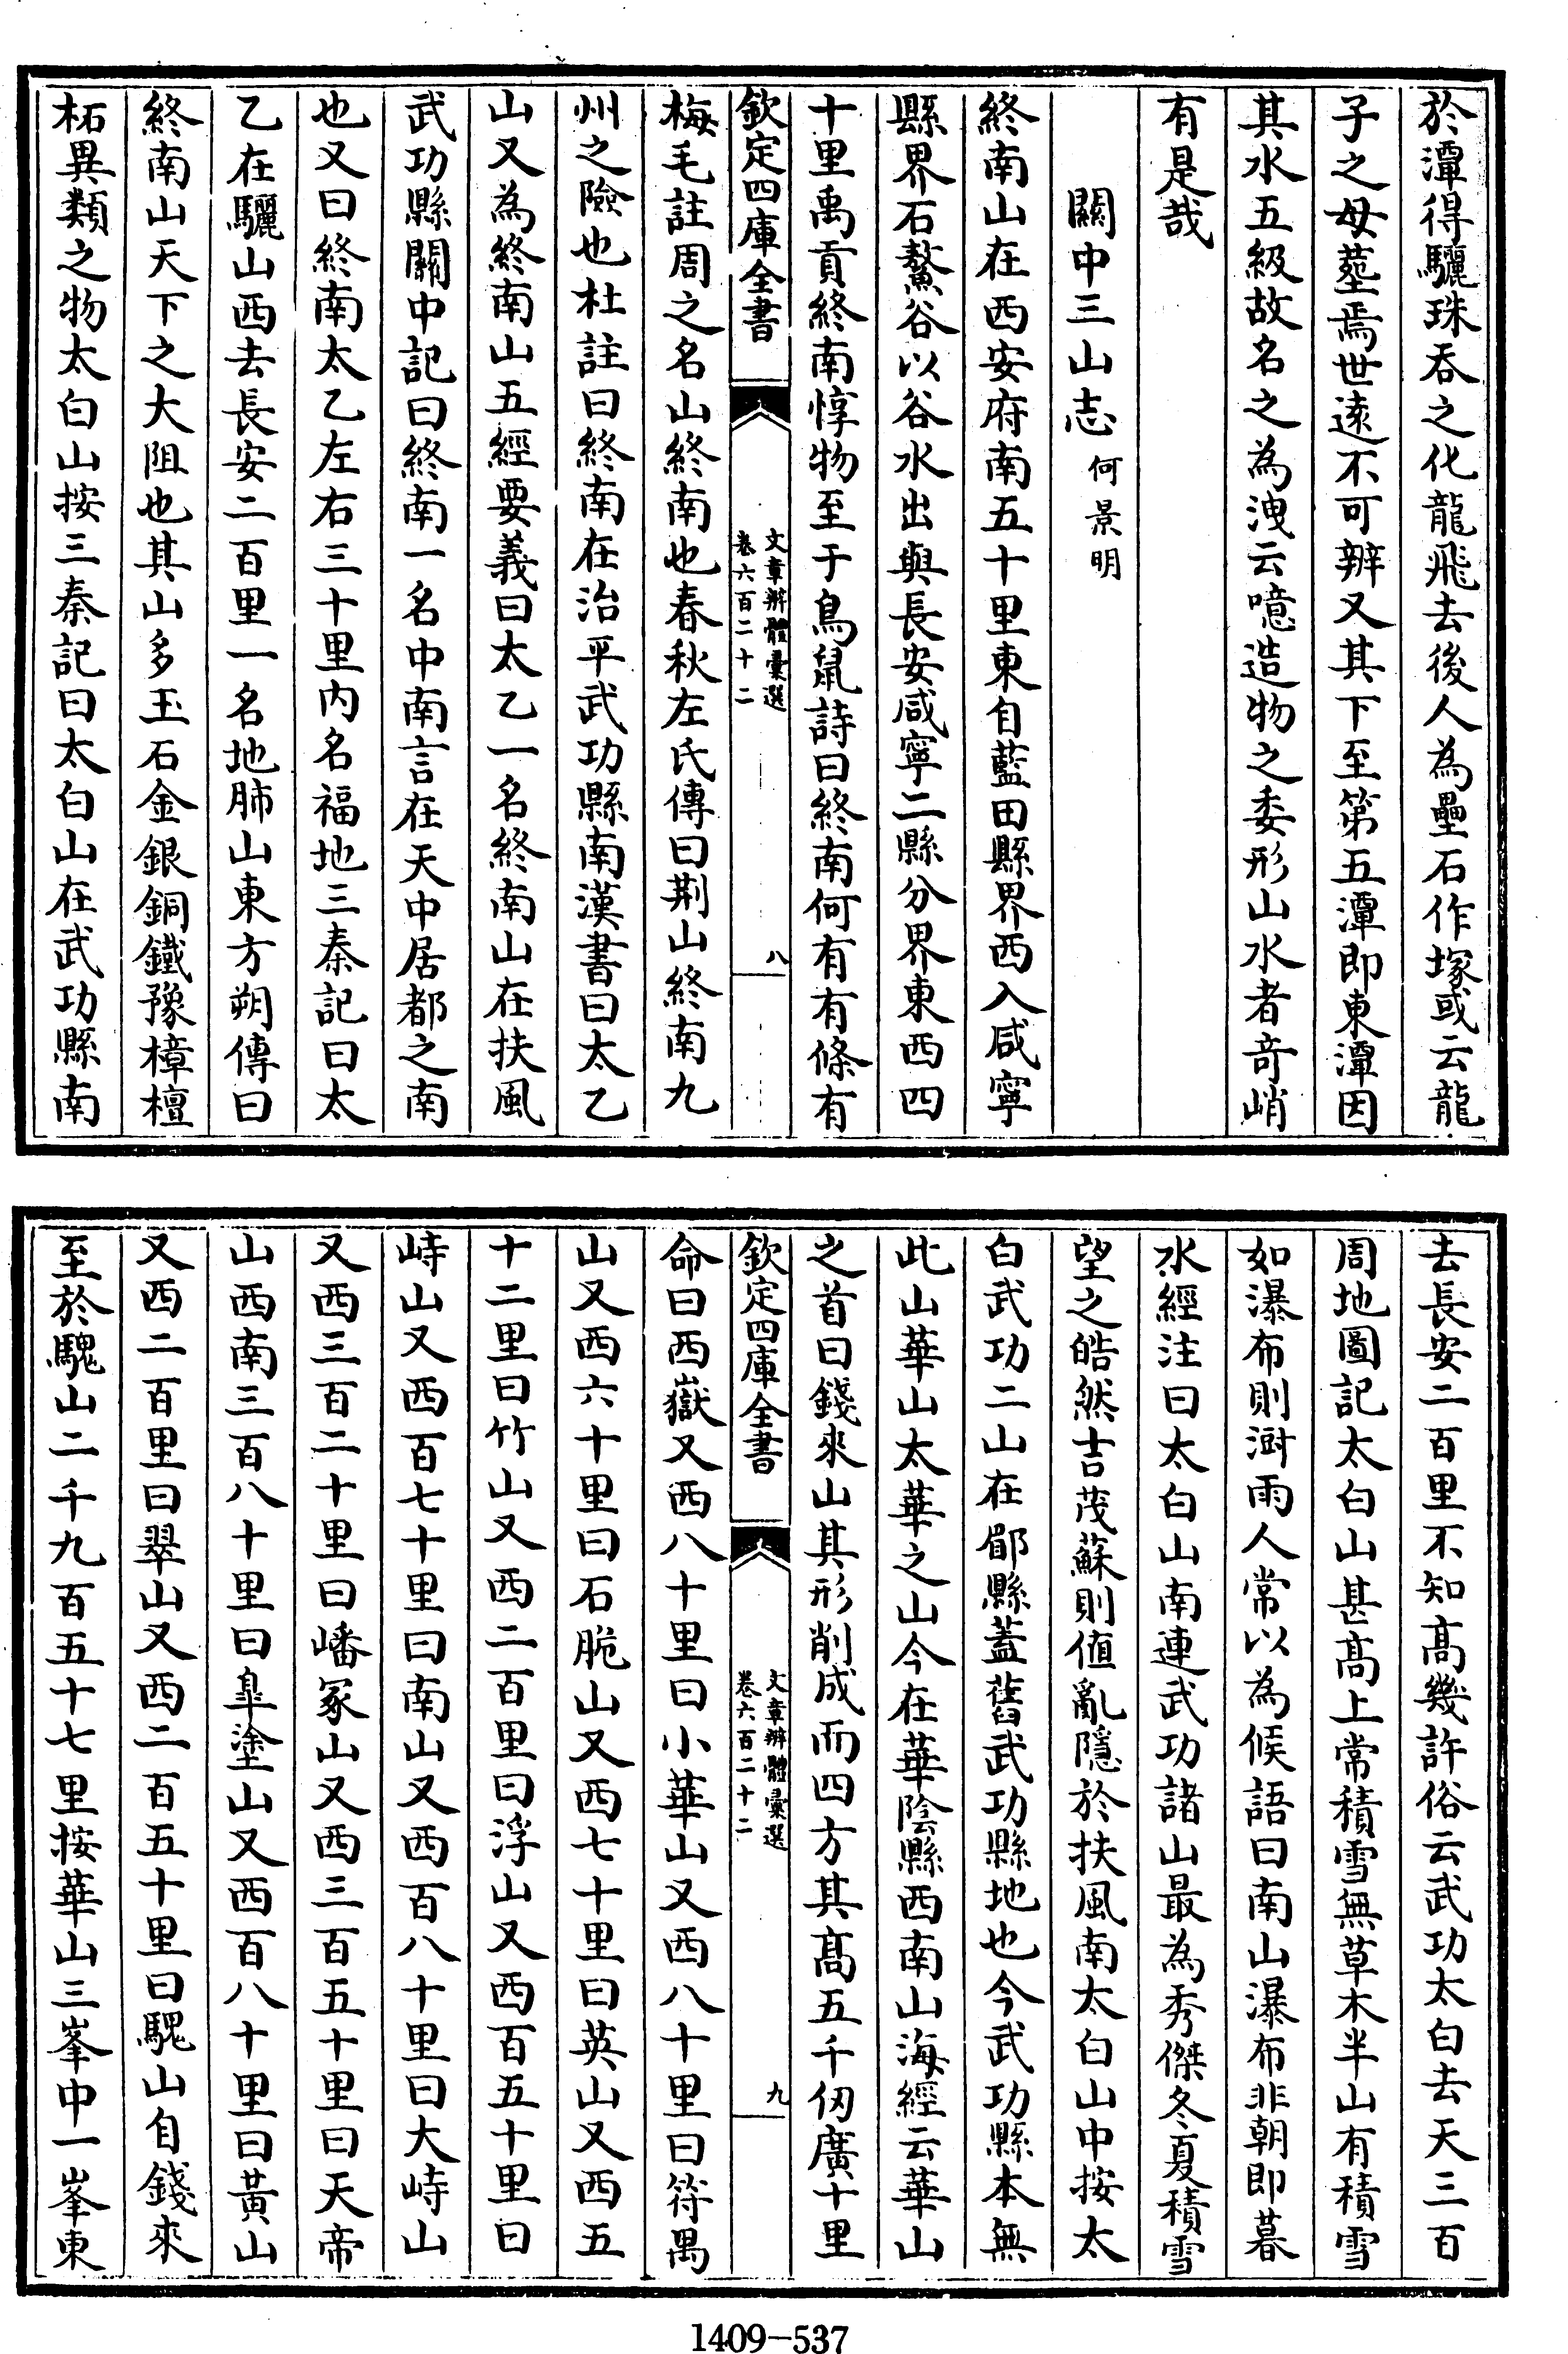 於潭得驪珠吞之化龍飛去後人為壘石作塚或云龍
子之母塟焉世逺不可辨又其下至第五潭即東潭因
其水五級故名之為洩云噫造物之委形山水者竒峭
有是哉
關中三山志 何景明
終南山在西安府南五十里東自藍田縣界西入咸寧
縣界石鰲谷以谷水出與長安咸寧二縣分界東西四
十里禹貢終南惇物至于鳥鼠詩曰終南何有有條有
欽定四庫全書
文章辨體彙選
卷六百二十二
八
梅毛註周之名山終南也春秋左氏傳曰荆山終南九
州之險也杜註曰終南在治平武功縣南漢書曰太乙
山又為終南山五經要義曰太乙一名終南山在扶風
武功縣關中記曰終南一名中南言在天中居都之南
也又曰終南太乙左右三十里内名福地三秦記曰太
乙在驪山西去長安二百里一名地肺山東方朔傳曰
終南山天下之大阻也其山多玉石金銀銅鐵豫樟檀
柘異類之物太白山按三秦記曰太白山在武功縣南
去長安二百里不知髙幾許俗云武功太白去天三百
周地圖記太白山甚髙上常積雪無草木半山有積雪
如瀑布則澍雨人常以為候語曰南山瀑布非朝即暮
水經注曰太白山南連武功諸山最為秀傑冬夏積雪
望之皓然吉茂蘇則値亂隱於扶風南太白山中按太
白武功二山在郿縣蓋舊武功縣地也今武功縣本無
此山華山太華之山今在華隂縣西南山海經云華山
之首曰錢來山其形削成而四方其髙五千仞廣十里
欽定四庫全書
文章辨體彙選
卷六百二十二
九
命曰西嶽又西八十里曰小華山又西八十里曰符禺
山又西六十里曰石脆山又西七十里曰英山又西五
十二里曰竹山又西二百里曰浮山又西百五十里曰
峙山又西百七十里曰南山又西百八十里曰大峙山
又西三百二十里曰嶓冢山又西三百五十里曰天帝
山西南三百八十里曰臯塗山又西百八十里曰黃山
又西二百里曰翠山又西二百五十里曰騩山自錢來
至於騩山二千九百五十七里按華山三峯中一峯東
1409-537